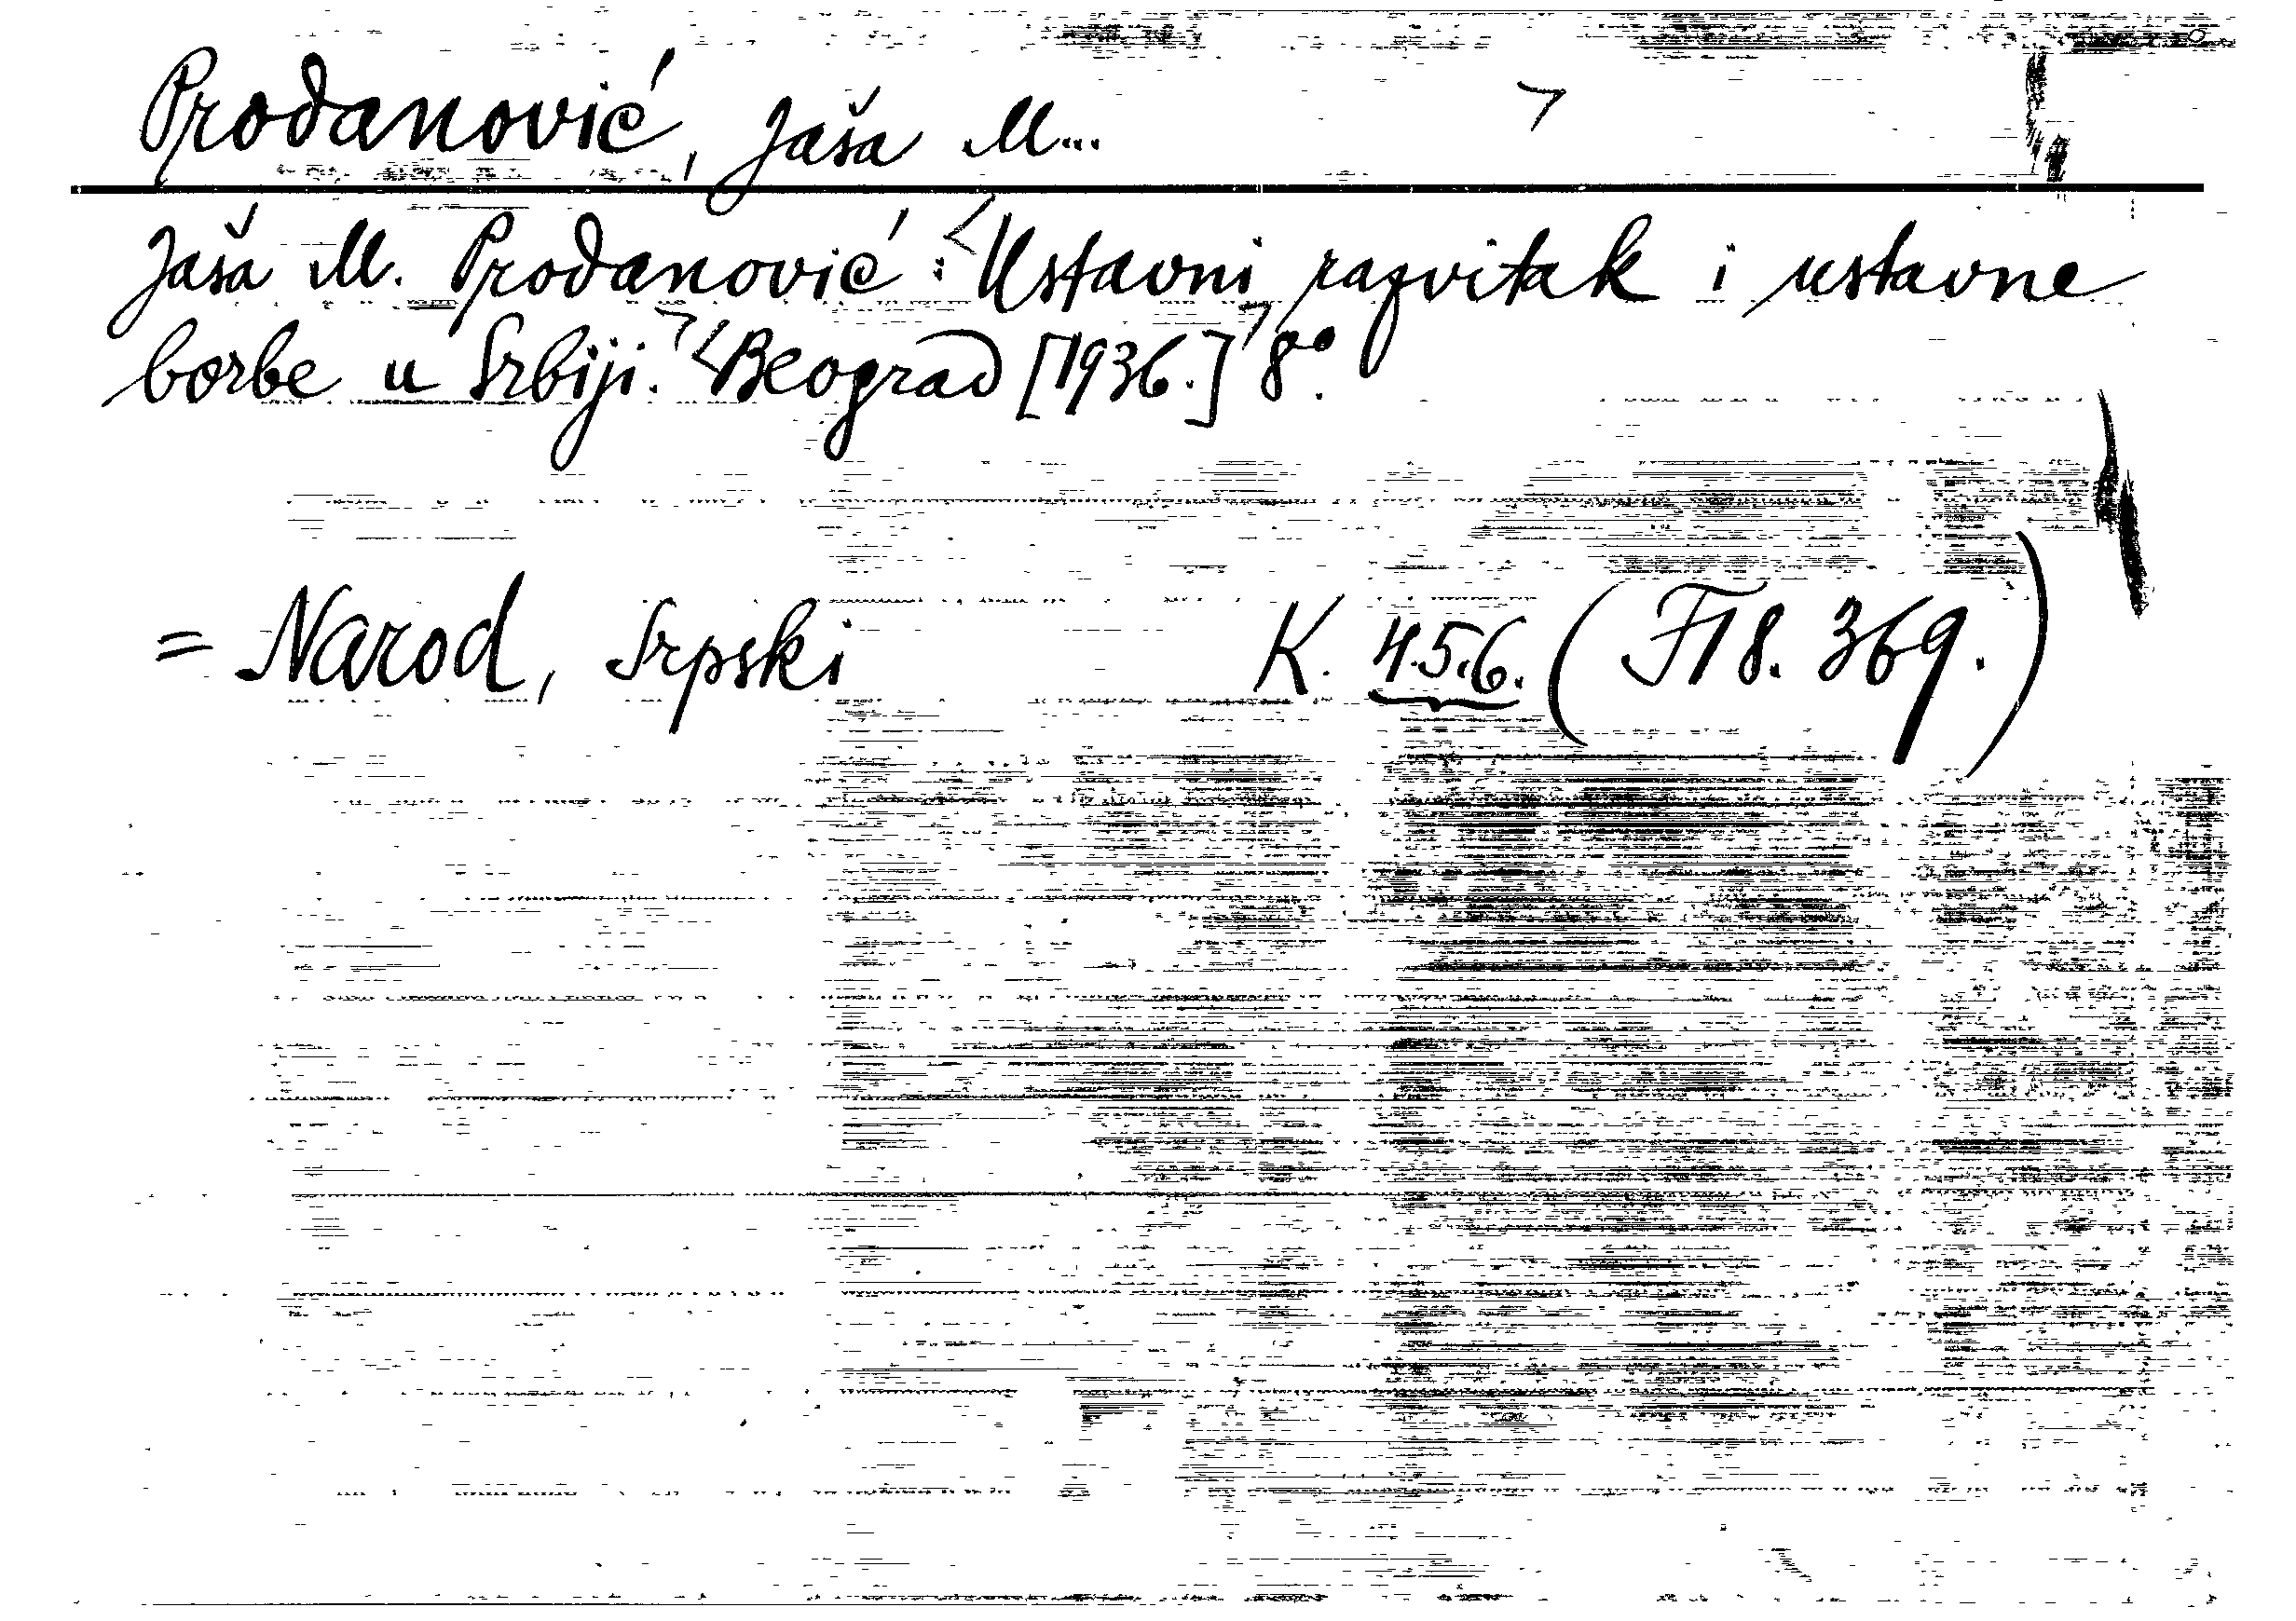 Prodanović, Jaša M...
Jaša M. Prodanović: Ustavni razvitak i ustavne
borbe u Srbiji. Beograd [1936.] 8°.
= Narod, Srpski K. 4.5.6. (F18.369.)